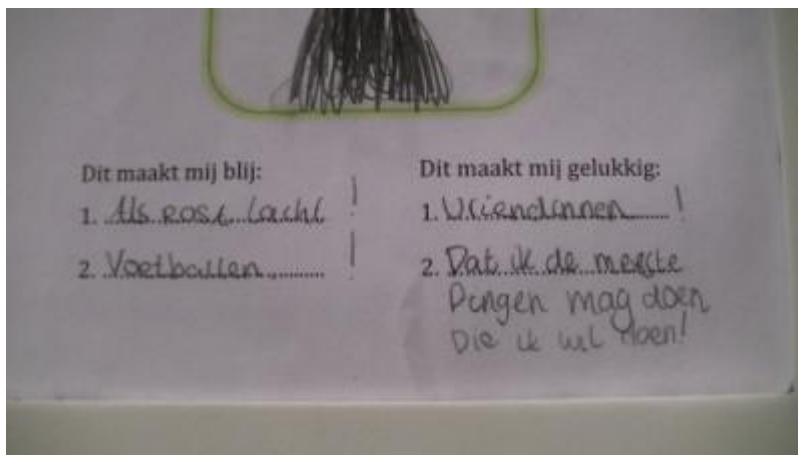 Dit maakt mij blij:
1. Als rose lacht !
2. Voetballen !
Dit maakt mij gelukkig:
1. Vriendinnen !
2. Dat ik de meeste
Dingen mag doen
Die ik wil doen!